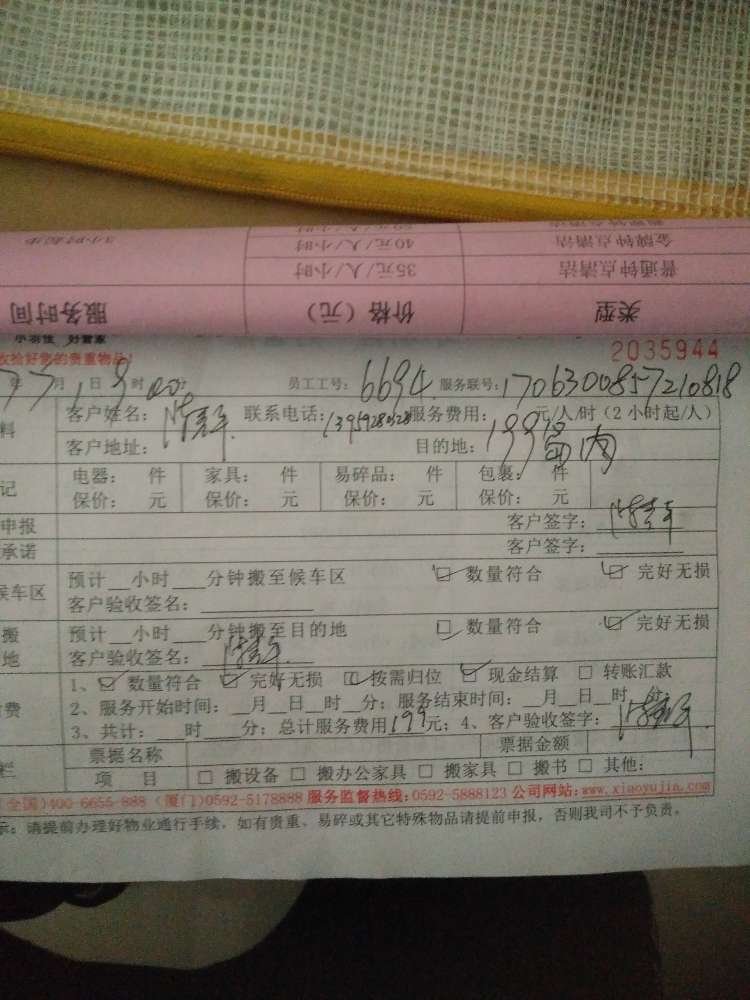 3小时起步 40元/人/小时 金牌钟点清洁
35元/人/小时 普通钟点清洁
服务时间 价格（元） 类型
小羽佳 好管家
收拾好您的贵重物品！ 2035944
年 月 日 9时00分 员工工号：6694 服务联号：1706300857210818
料 客户姓名： 联系电话： 服务费用： 元/人/时（2小时起/人）
客户地址： 目的地：岛内
199
记 电器： 件 家具： 件 易碎品： 件 包裹： 件
保价： 元 保价： 元 保价： 元 保价： 元
申报 客户签字：
承诺 客户签字：
候车区 预计__小时___分钟搬至候车区 数量符合 完好无损
客户验收签名：
搬 预计__小时___分钟搬至目的地 数量符合 完好无损
地 客户验收签名：
1、 数量符合 完好无损 按需归位 现金结算 转账汇款
费 2、服务开始时间：__月__日__时__分；服务结束时间：__月__日__时__分
3、共计：___时___分；总计服务费用199元；4、客户验收签字：
栏 票据名称 票据金额
项 目 □ 搬设备 □ 搬办公家具 □ 搬家具 □ 搬书 □ 其他：
（全国）400-6655-888（厦门）0592-5178888 服务监督热线：0592-5888123 公司网站：www.xiaoyujia.com
示：请提前办理好物业通行手续，如有贵重、易碎或其它特殊物品请提前申报，否则我司不予负责。